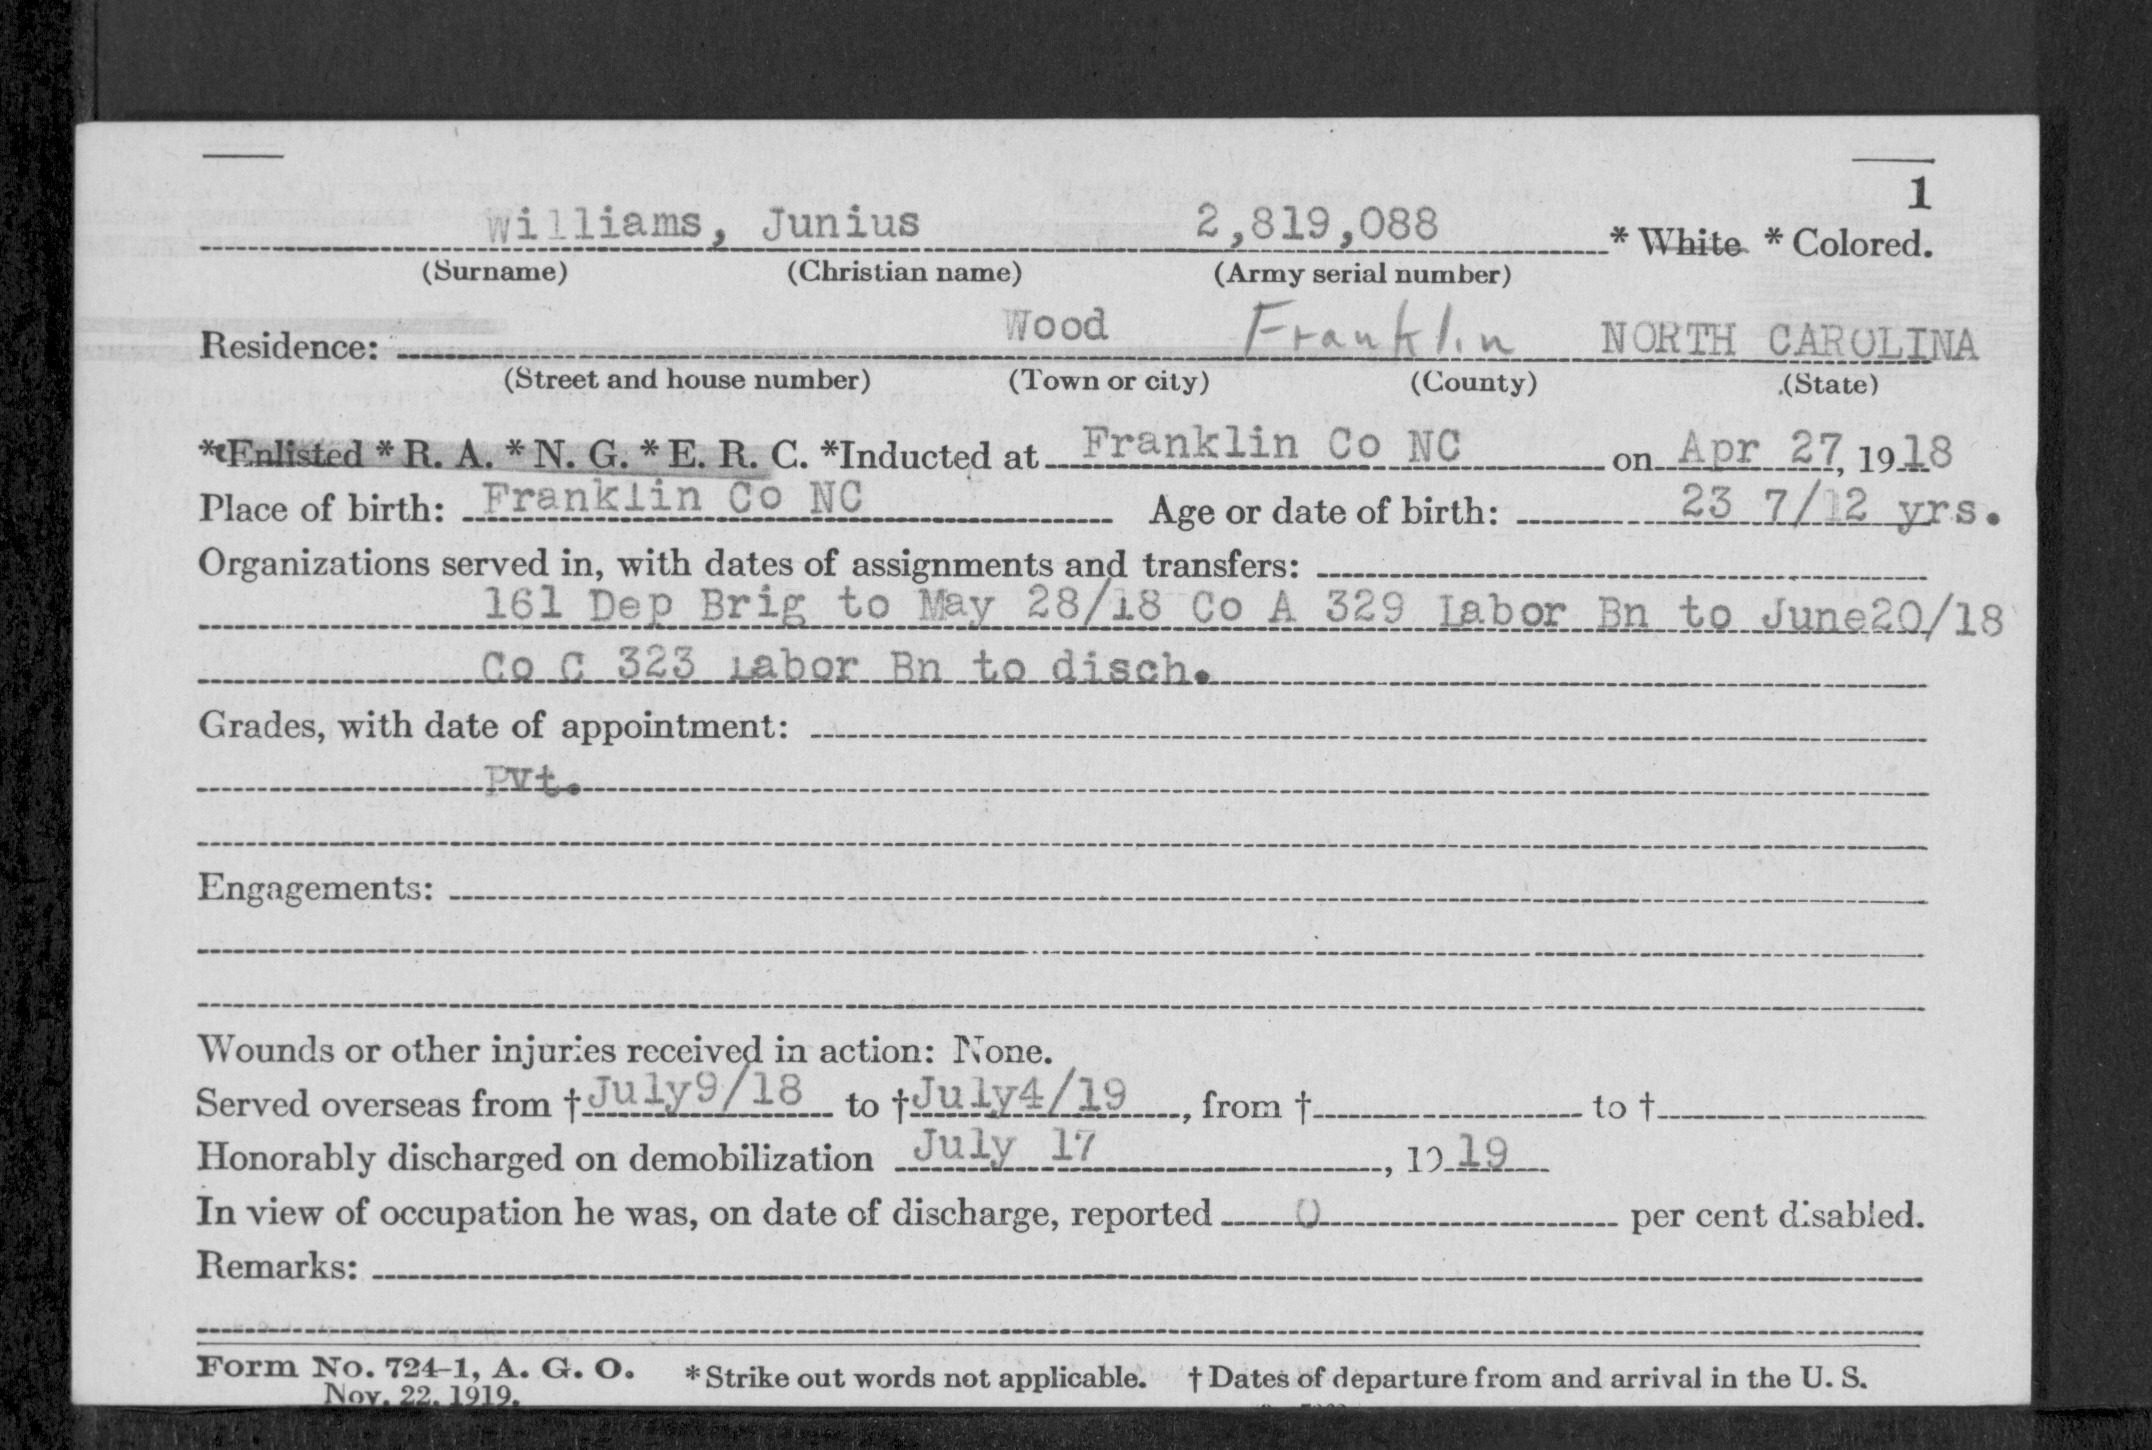 1
Williams, Junius 2,819,088 * White * Colored.
(Surname) (Christian name) (Army serial number)
Residence: Wood Franklin NORTH CAROLINA
(Street and house number) (Town or city) (County) (State)
*Enlisted * R. A. * N. G. * E. R. C. *Inducted at Franklin Co NC on Apr 27, 1918
Place of birth: Franklin Co NC Age or date of birth: 23 7/12 yrs.
Organizations served in, with dates of assignments and transfers:
161 Dep Brig to May 28/18 Co A 329 Labor Bn to June20/18
Co C 323 Labor Bn to disch.
Grades, with date of appointment:
Pvt.
Engagements:
Wounds or other injuries received in action: None.
Served overseas from † July9/18 to † July4/19, from † to †
Honorably discharged on demobilization July 17, 1919
In view of occupation he was, on date of discharge, reported 0 per cent disabled.
Remarks:
Form No. 724-1, A. G. O. * Strike out words not applicable. † Dates of departure from and arrival in the U. S.
Nov. 22, 1919.